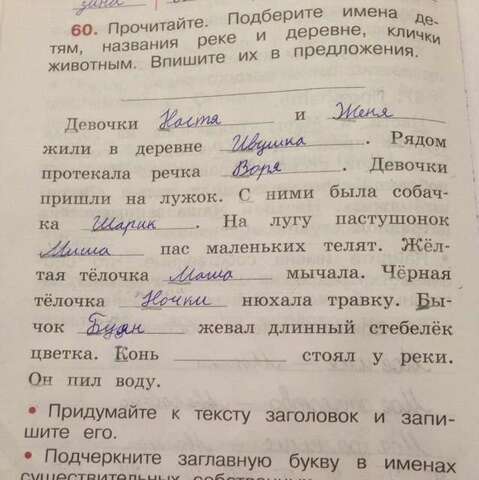 60. Прочитайте. Подберите имена де-
тям, названия реке и деревне, клички
животным. Впишите их в предложения.
Девочки Настя и Женя
жили в деревне Ивушка. Рядом
протекала речка Воря. Девочки
пришли на лужок. С ними была собач-
ка Шарик. На лугу пастушонок
Миша пас маленьких телят. Жёл-
тая тёлочка Маша мычала. Чёрная
тёлочка Ночки нюхала травку. Бы-
чок Буян жевал длинный стебелёк
цветка. Конь стоял у реки.
Он пил воду.
• Придумайте к тексту заголовок и запи-
шите его.
• Подчеркните заглавную букву в именах
существительных собственных